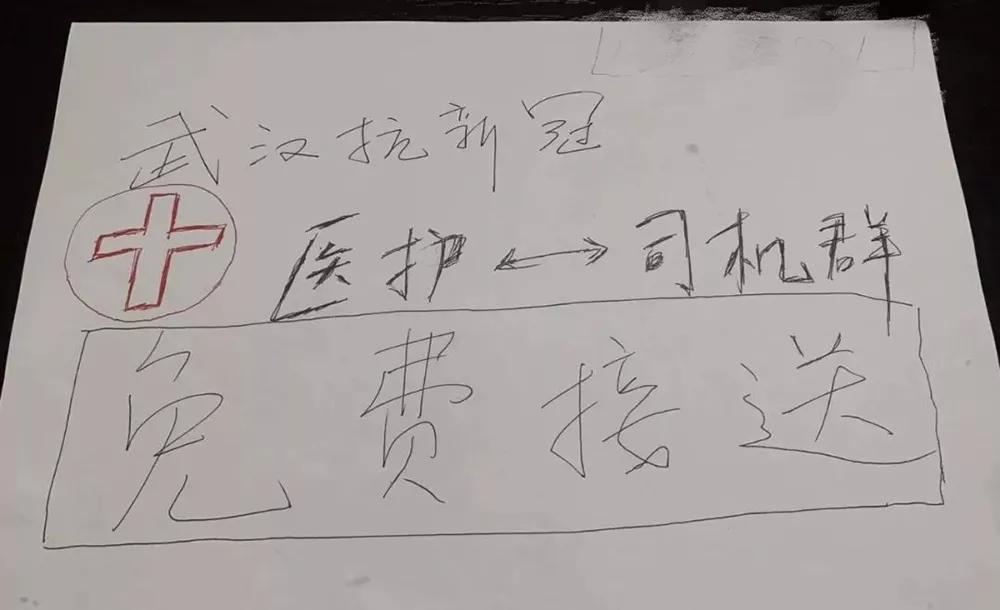 武汉抗新冠
医护←→司机群
免费接送